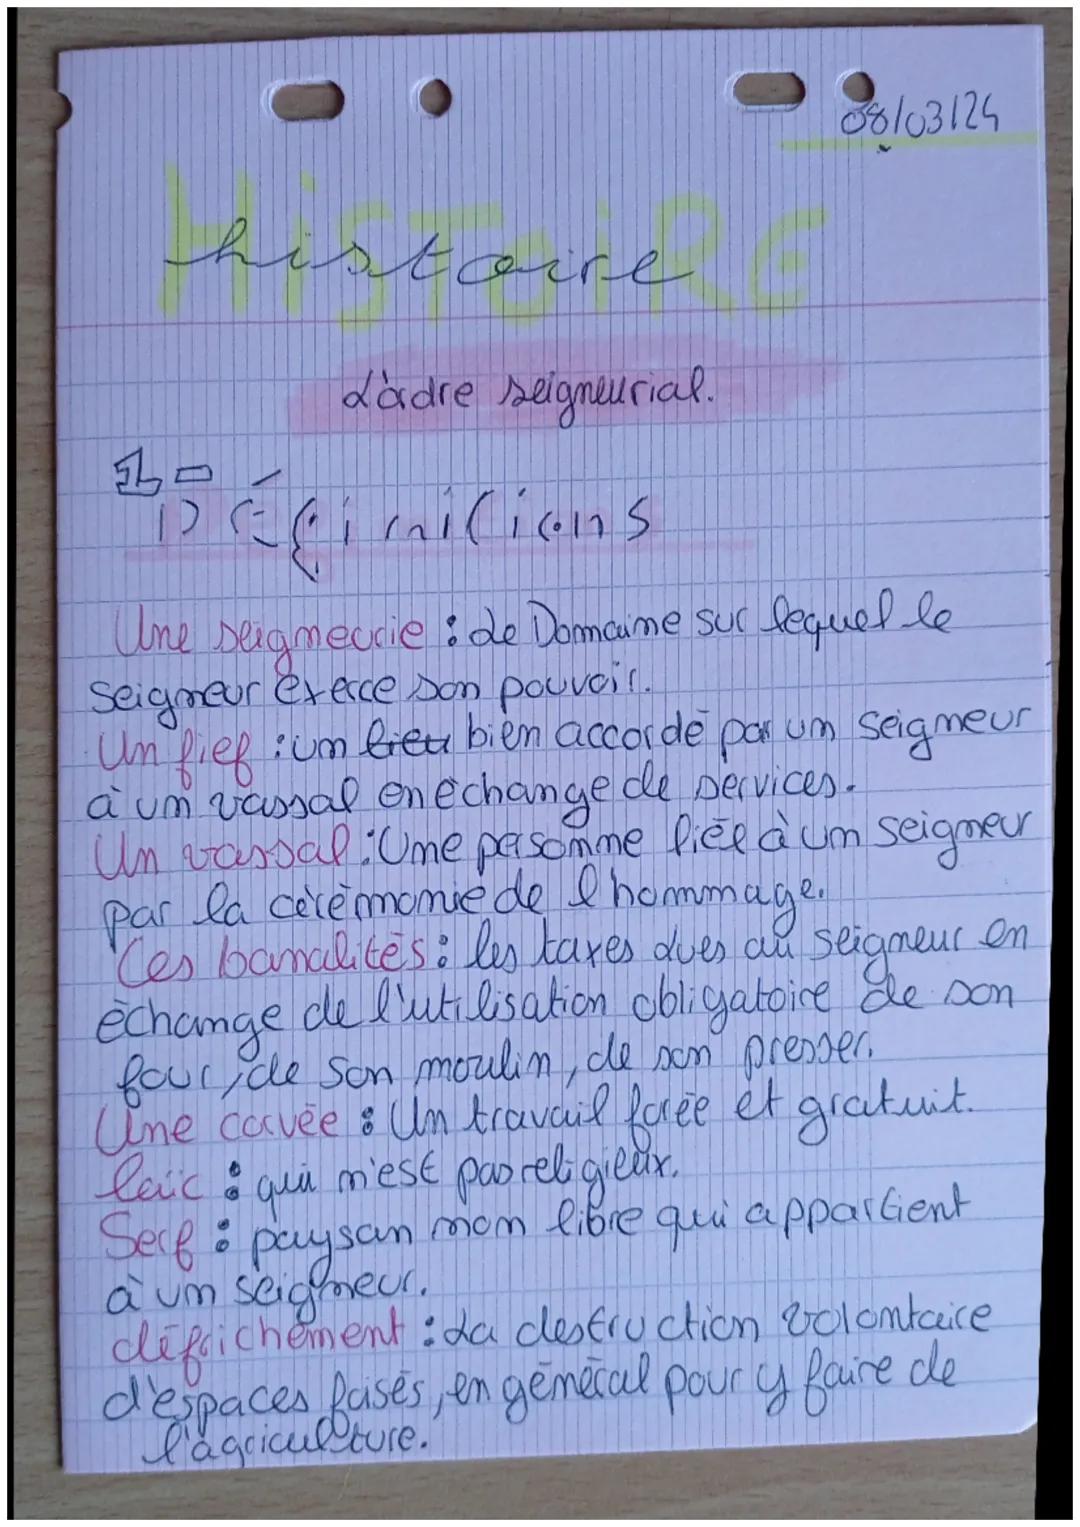 08/03/24
HiSTOiRE
histoire
L'ordre seigneurial.
1-
DÉfinitions
Une seigneurie : Le Domaine sur lequel le
seigneur exerce son pouvoir.
Un fief : un lieu bien accordé par un seigneur
à un vassal en échange de services.
Un vassal : Une personne liée à un seigneur
par la cérémonie de l'hommage.
Les banalités : les taxes dues au seigneur en
échange de l'utilisation obligatoire de son
four, de son moulin, de son presser.
Une corvée : Un travail forée et gratuit.
laïc : qui n'est pas religieux.
Serf : paysan non libre qui appartient
à un seigneur.
défrichement : La destruction volontaire
d'espaces faisés, en général pour y faire de
l'agriculture.